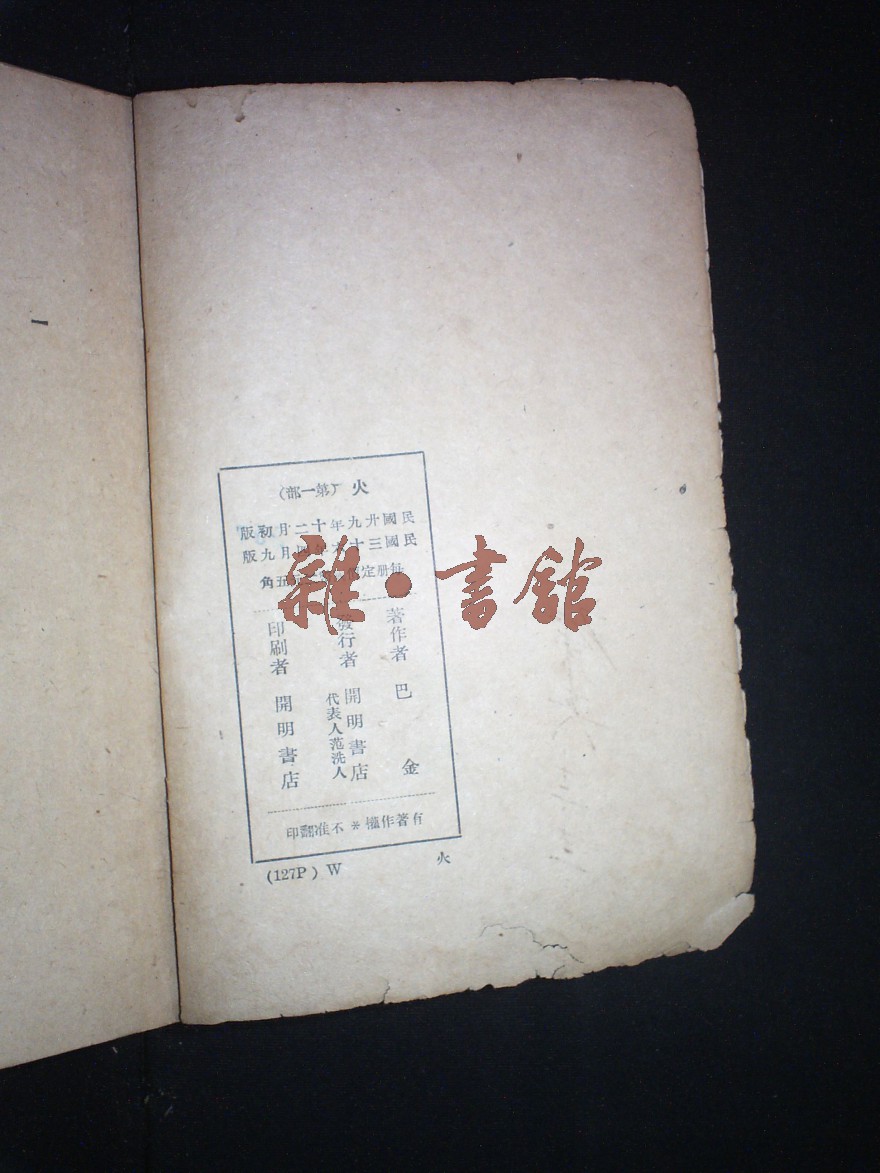 火（第一部）
民國廿九年十二月初版
民國三十六年四月九版
每册定價 五角
著作者 巴金
發行者 開明書店
代表人范洗人
印刷者 開明書店
有著作權＊不准翻印
(127P) W 火
雜·書館